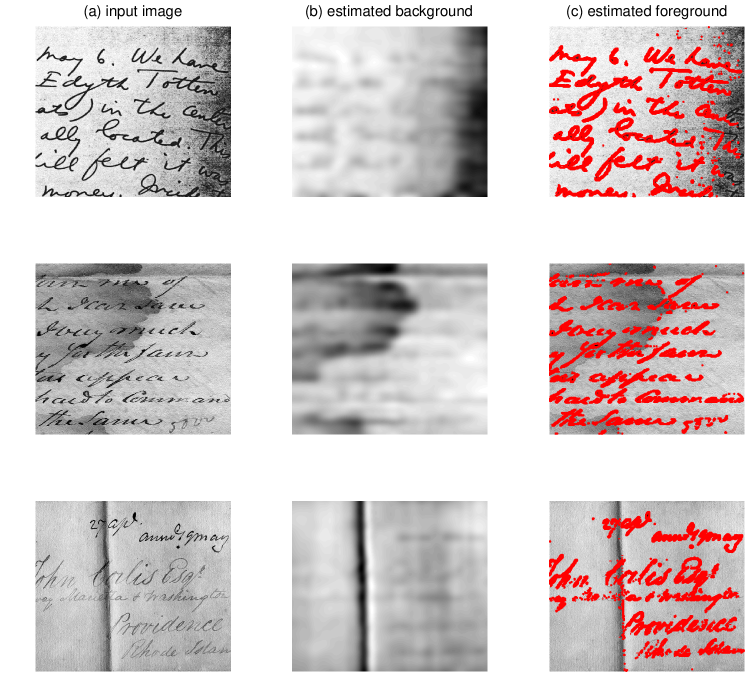 (a) input image
(b) estimated background
(c) estimated foreground
may 6. We have
Edyth Totten
ats) in the Center
ally located. The
will felt it wa
money.
me of
h Dear Sam
much
y for the Sam
as appear
hard to Command
the Same
27 apl.
annd. 19 may
John Corlis Esqr.
Marietta & Washington
Providence
Rhode Islan
may 6. We have
Edyth Totten
ats) in the Center
ally located. The
will felt it wa
money.
me of
h Dear Sam
much
y for the Sam
as appear
hard to Command
the Same
27 apl.
annd. 19 may
John Corlis Esqr.
Providence
Rhode Islan